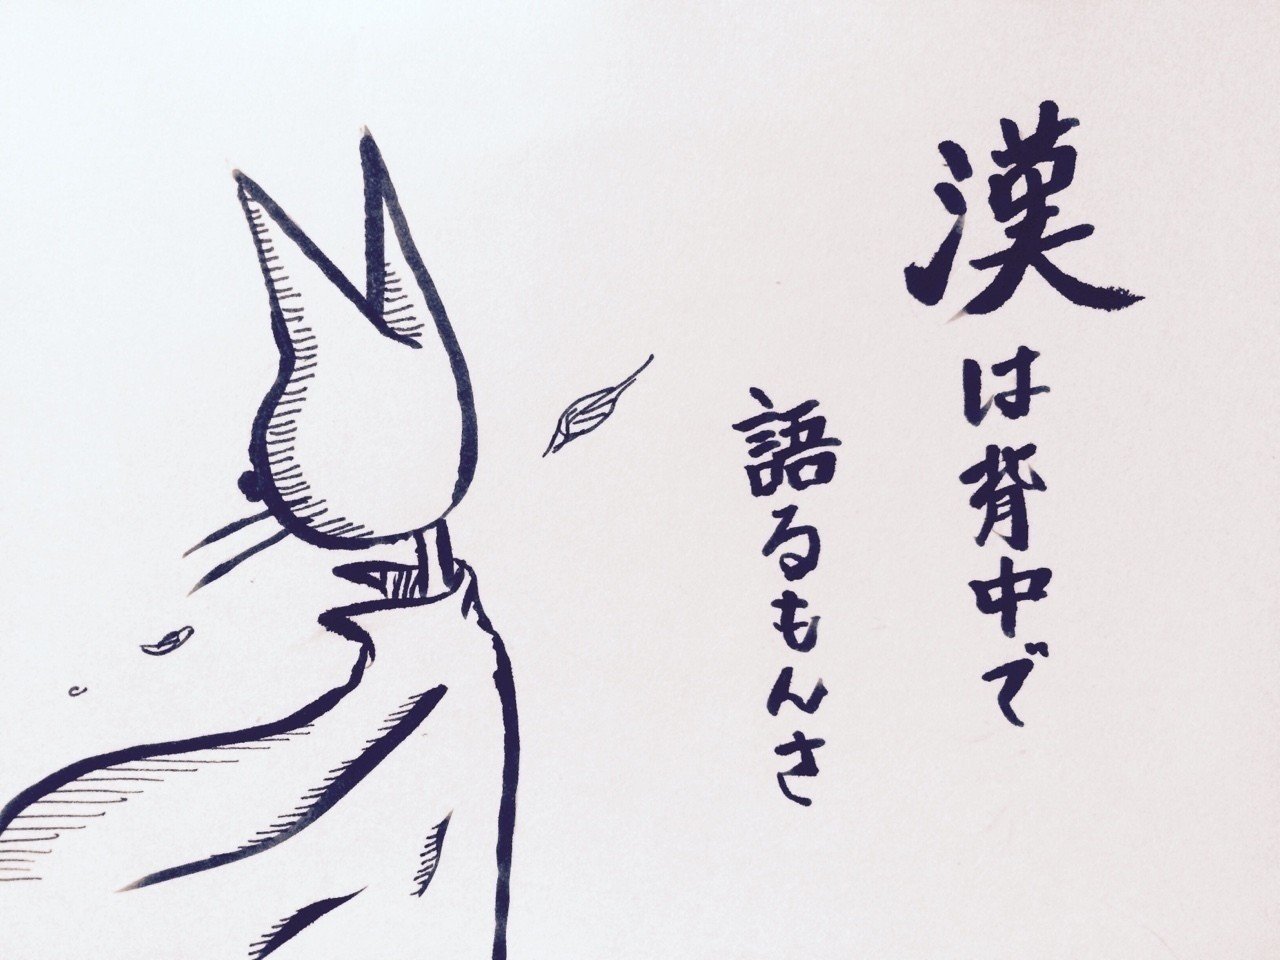 漢は背中で
語るもんさ